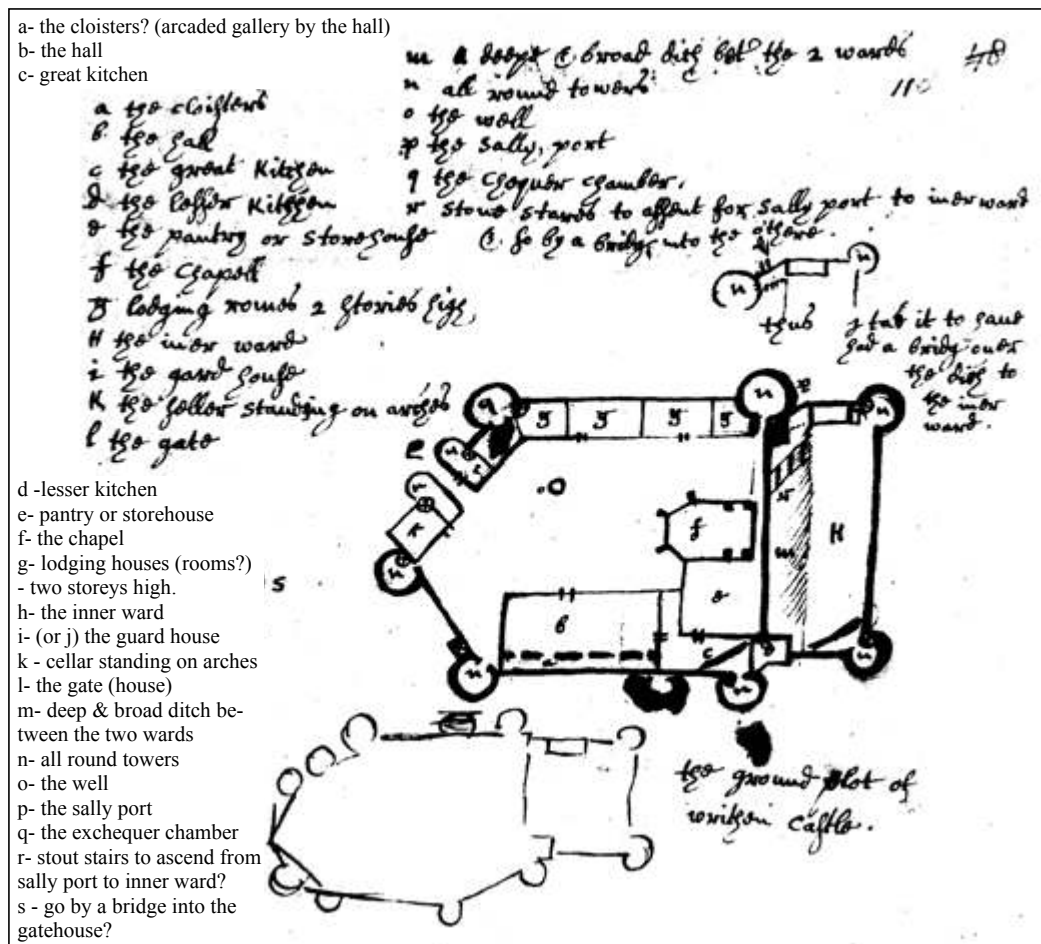 a- the cloisters? (arcaded gallery by the hall)
b- the hall
c- great kitchen
a the cloisters
b the hall
c the great Kitchen
d the lesser Kitchen
e the pantry or storehouse
f the Chapell
g lodging romes 2 stories high,
H the iner ward
i the gard house
K the seller standing on arches
l the gate
m a deepe & broad dich bet the 2 wards
n all round towers
o the well
p the sally, port
q the Chequer chamber.
r stone stares to assent for sally port to iner ward
& so by a bridg into the othere.
48
110
thus I tak it to have
had a bridg over
the dich to
the iner
ward.
n
n
q
g
g
g
g
n
p
n
e
n
n
K
n
o
f
r
m
H
s
b
a
e
c
n
n
n
d -lesser kitchen
e- pantry or storehouse
f- the chapel
g- lodging houses (rooms?)
- two storeys high.
h- the inner ward
i- (or j) the guard house
k - cellar standing on arches
l- the gate (house)
m- deep & broad ditch be-
tween the two wards
n- all round towers
o- the well
p- the sally port
q- the exchequer chamber
r- stout stairs to ascend from
sally port to inner ward?
s - go by a bridge into the
gatehouse?
the ground plot of
writhen Castle.